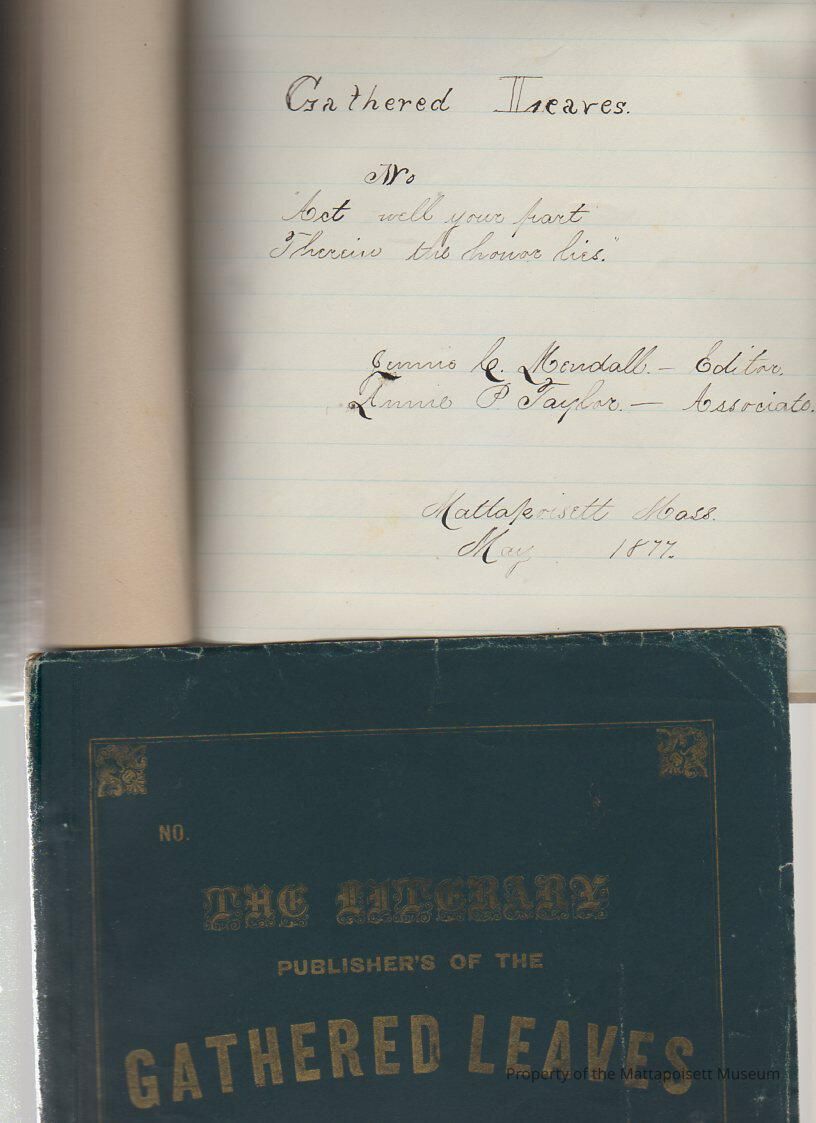 Gathered Leaves.
No
"Act well your part
Therein the honor lies."
Jennie C. Mendall. — Editor.
Annie P Taylor. — Associate.
Mattapoisett Mass.
May 1877.
NO.
THE LITERARY
PUBLISHER'S OF THE
GATHERED LEAVES
Property of the Mattapoisett Museum